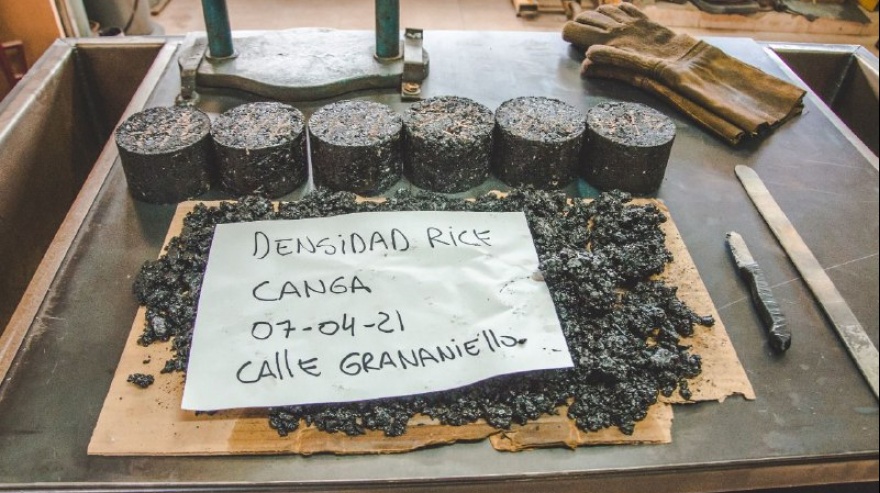 DENSIDAD RICE
CANGA
07-04-21
CALLE GRANANIELLO